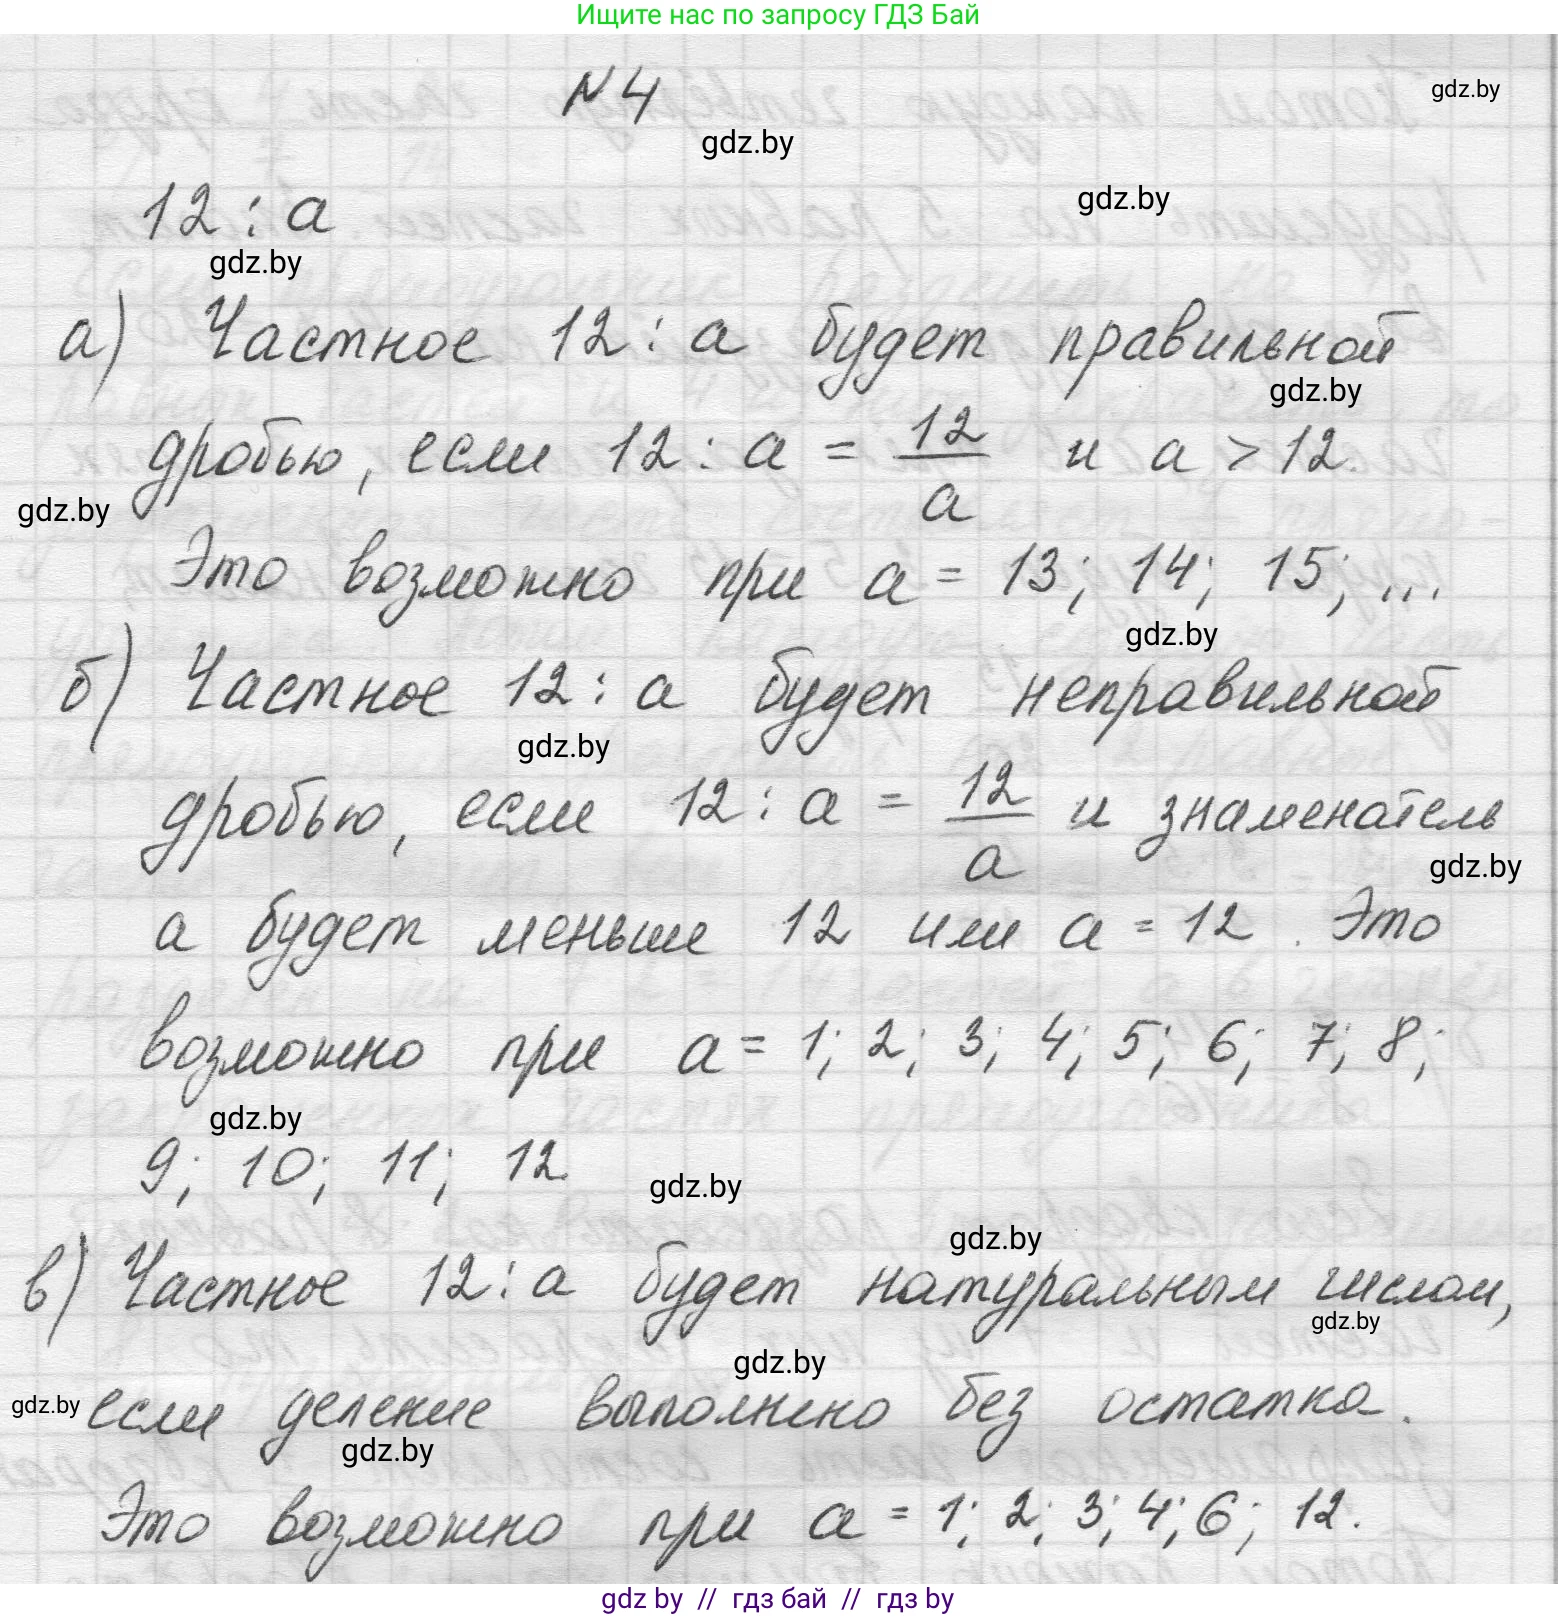 Ищите нас по запросу ГДЗ Бай
N 4
gdz.by
gdz.by
gdz.by
12 : a
gdz.by
а) Частное 12 : a будет правильной
gdz.by
дробью, если 12 : a = 12/a и a > 12.
gdz.by
Это возможно при a = 13; 14; 15; ...
gdz.by
б) Частное 12 : a будет неправильной
gdz.by
дробью, если 12 : a = 12/a и знаменатель
gdz.by
a будет меньше 12 или a = 12. Это
возможно при a = 1; 2; 3; 4; 5; 6; 7; 8;
gdz.by
9; 10; 11; 12
gdz.by
gdz.by
в) Частное 12 : a будет натуральным числом,
gdz.by
gdz.by
gdz.by
если деление выполнено без остатка.
gdz.by
Это возможно при a = 1; 2; 3; 4; 6; 12.
gdz by // гдз бай // gdz by